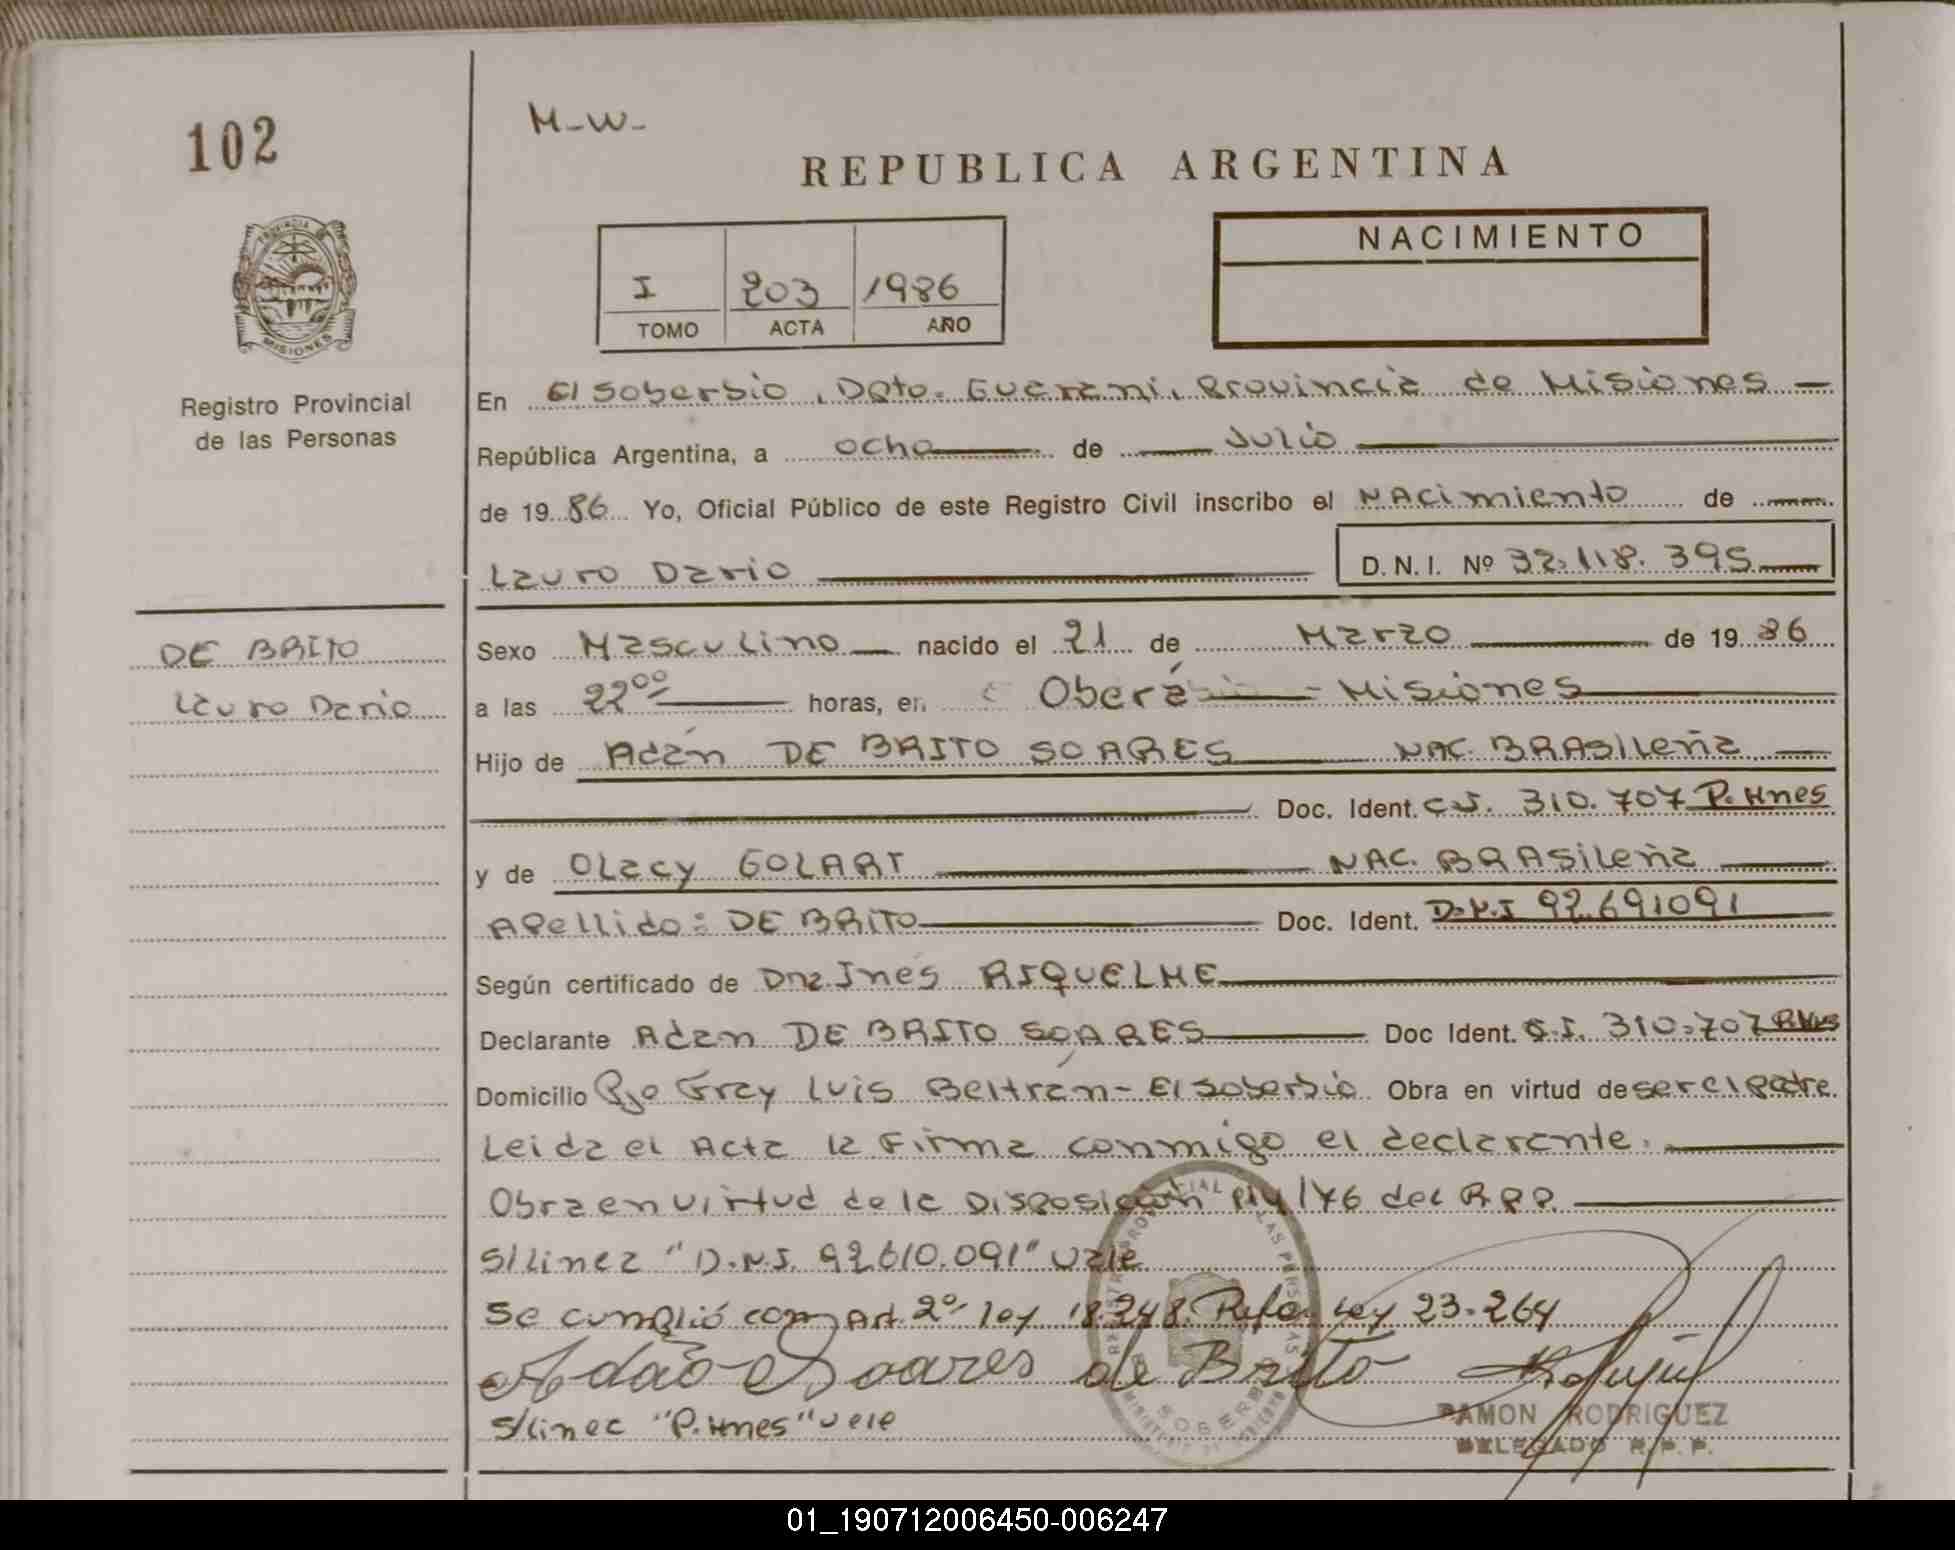 102
M-W-
REPUBLICA ARGENTINA
PROVINCIA DE
MISIONES
I 203 1986
TOMO ACTA AÑO
NACIMIENTO
Registro Provincial
de las Personas
En El Soberbio, Dpto. Guarani, Provincia de Misiones
República Argentina, a ocho de Julio
de 1986 Yo, Oficial Público de este Registro Civil inscribo el NAcimiento de
Lauro Dario D.N.I. Nº 32.118.395
DE BRITO
Lauro Dario
Sexo Masculino nacido el 21 de Marzo de 1986
a las 22⁰⁰ horas, en Oberá - Misiones
Hijo de Adán DE BRITO SOARES NAC. BRASileña
Doc. Ident. C.I. 310.707 P. Mnes
y de OLacy GOLART NAC. BRASileña
APellido: DE BRITO Doc. Ident. D.N.I 92.691091
Según certificado de Dra Inés RIQUELME
Declarante Adan DE BRITO SOARES Doc Ident. C.I. 310.707 P.Mnes
Domicilio Pje Fray Luis Beltrán - El Soberbio Obra en virtud de ser el padre.
Leida el Acta la Firma conmigo el declarante.
Obra en virtud de la Disposición 114/76 del R.P.P.
S/linea "D.N.I. 92.610.091" Vale
Se cumplió con Art. 2º ley 18.248. Refor. Ley 23.264
Adão Soares de Brito
S/linea "P. Mnes" Vale
RAMON RODRIGUEZ
DELEGADO R.P.P.
01_190712006450-006247